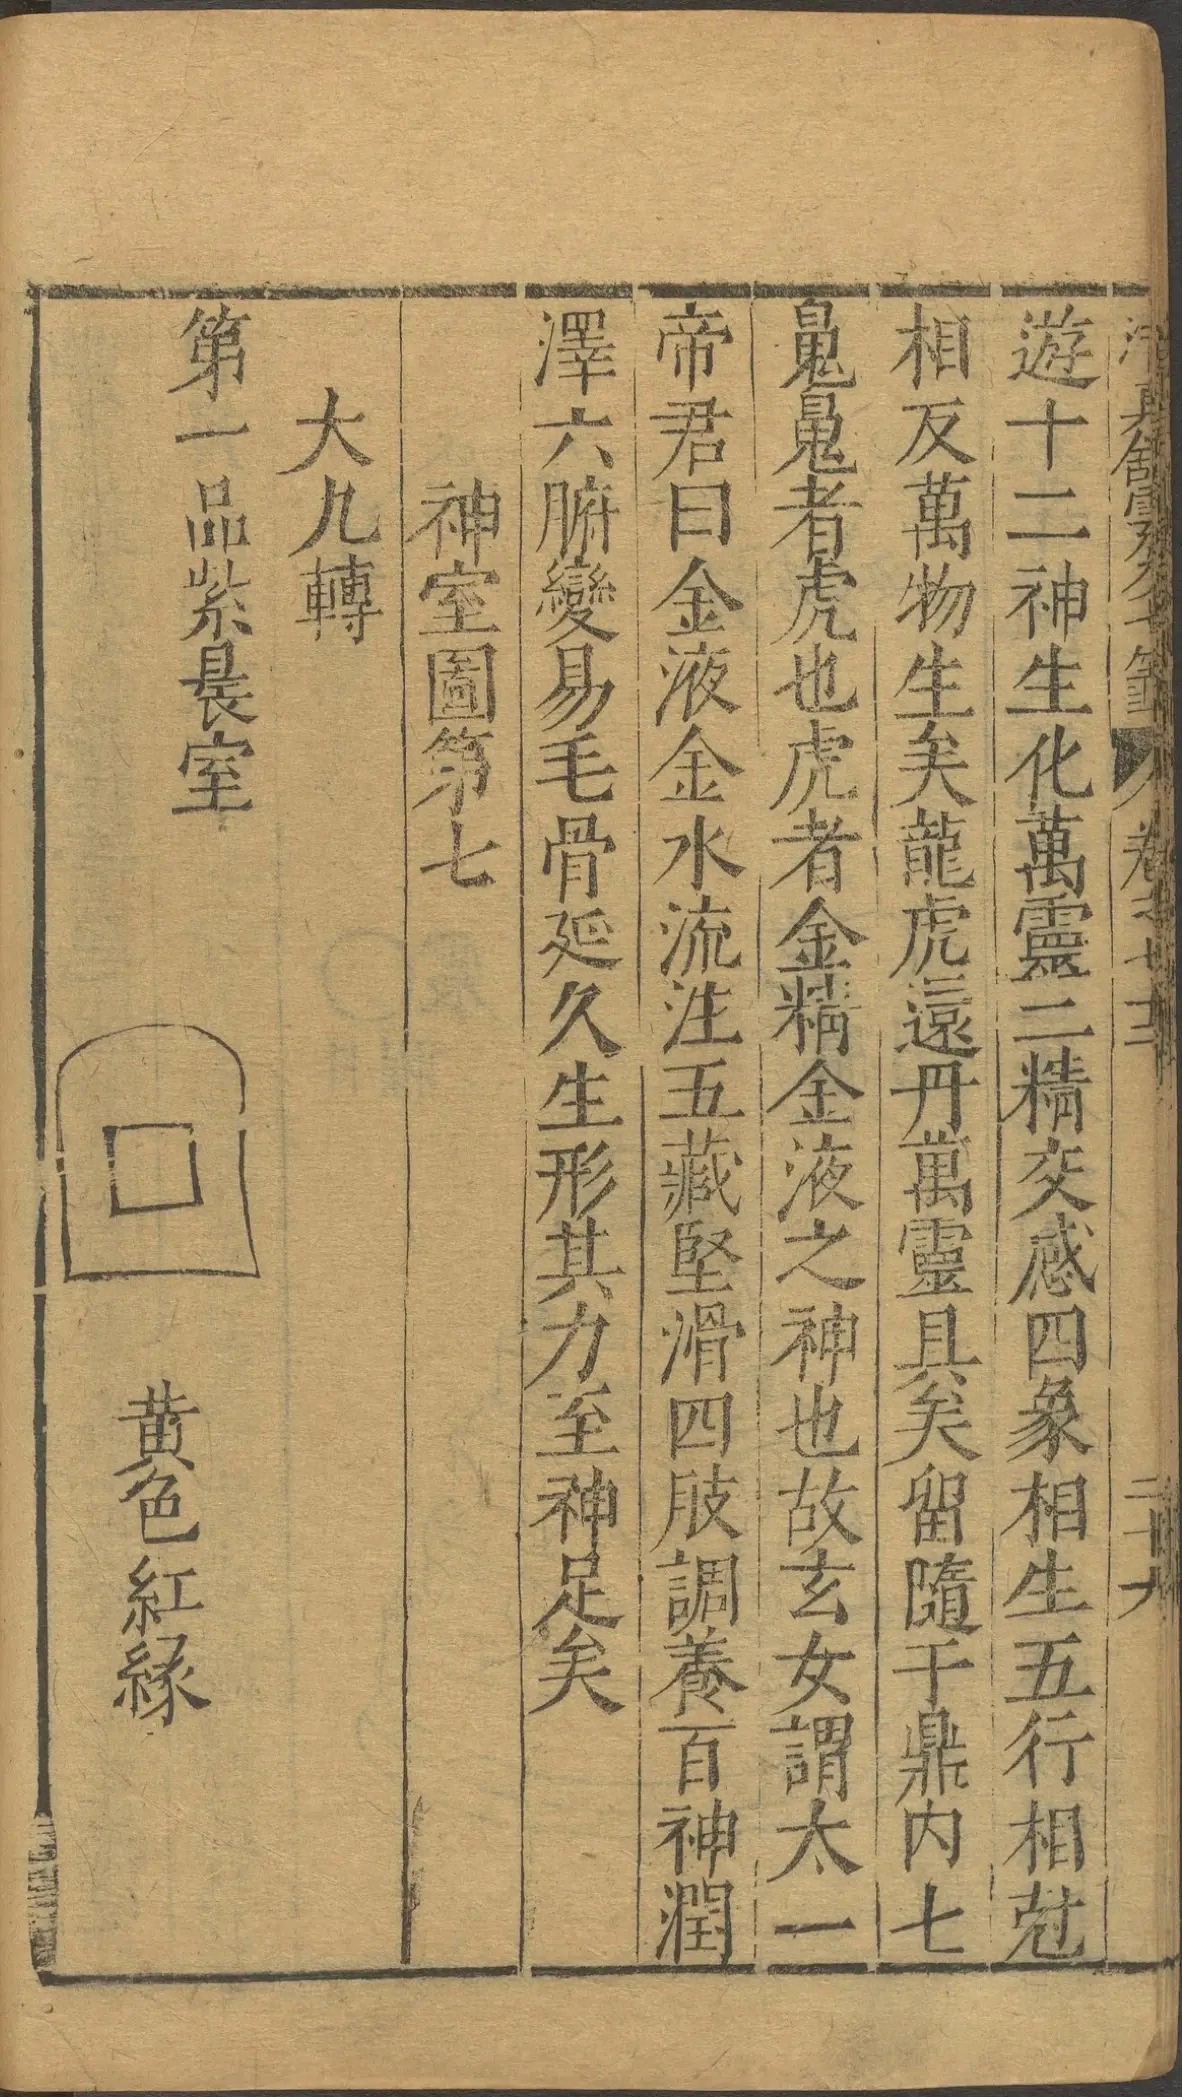 遊十二神生化萬靈二精交感四象相生五行相尅
相反萬物生矣龍虎還丹萬靈具矣留隨于鼎內七
鼂鼂者虎也虎者金精金液之神也故玄女謂太一
帝君曰金液金水流注五藏堅滑四肢調養百神潤
澤六腑變易毛骨延久生形其力至神足矣
神室圖第七
大九轉
第一品紫晨室
黃色紅緣
卷之七十二
二十九